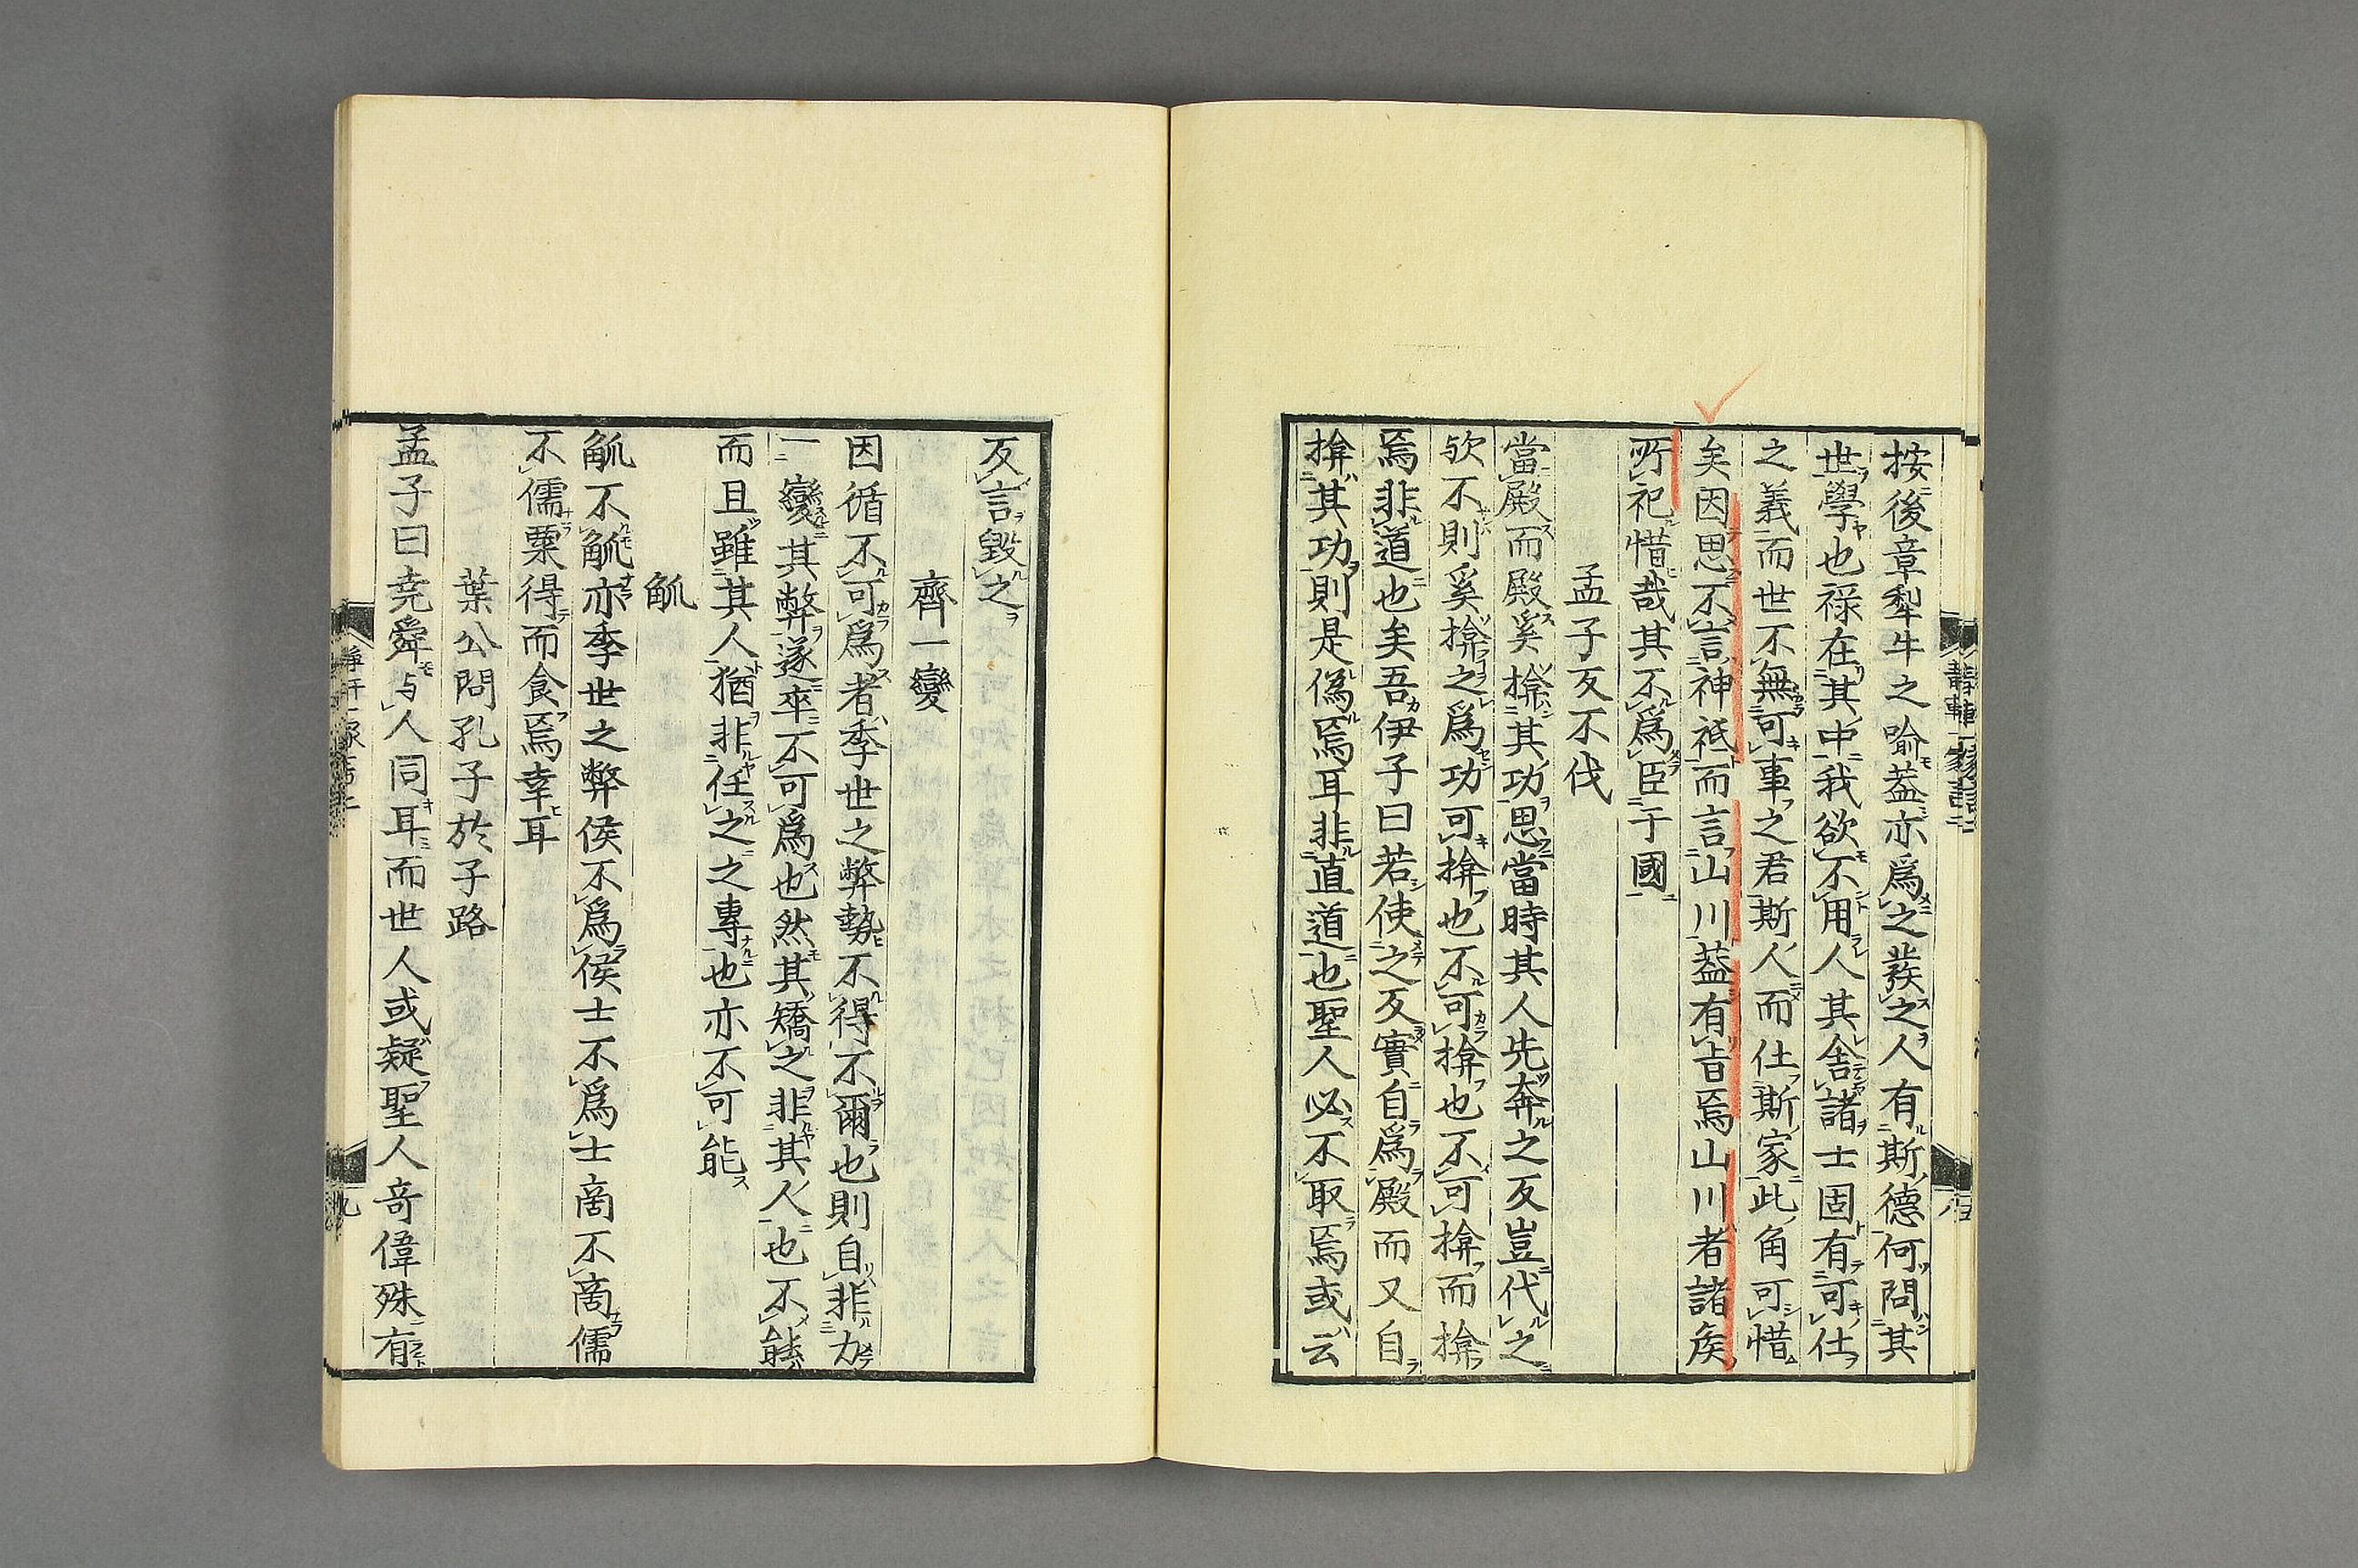 按後章犁牛之喻蓋亦爲之發之人有斯德何問其
世學也祿在其中我欲不用人其舍諸士固有可仕
之義而世不無可事之君斯人而仕斯家此角可惜
矣因思不言神祗而言山川蓋有旨焉山川者諸侯
所祀惜哉其不爲臣于國
孟子反不伐
當殿而殿奚揜其功思當時其人先奔之反豈代之
欤不則奚揜之爲功可揜也不可揜也不可揜而揜
焉非道也矣吾伊子曰若使之反實自爲殿而又自
揜其功則是偽焉耳非直道也聖人必不取焉或云
反言毀之
齊一變
因循不可爲者季世之弊勢不得不爾也則自非力
一變其弊遂卒不可爲也然其矯之非其人也不能
而且雖其人猶非任之之專也亦不可能
觚
觚不觚亦季世之弊侯不爲侯士不爲士商不商儒
不儒粟得而食焉幸耳
葉公問孔子於子路
孟子曰尭舜与人同耳而世人或疑聖人奇偉殊有
九